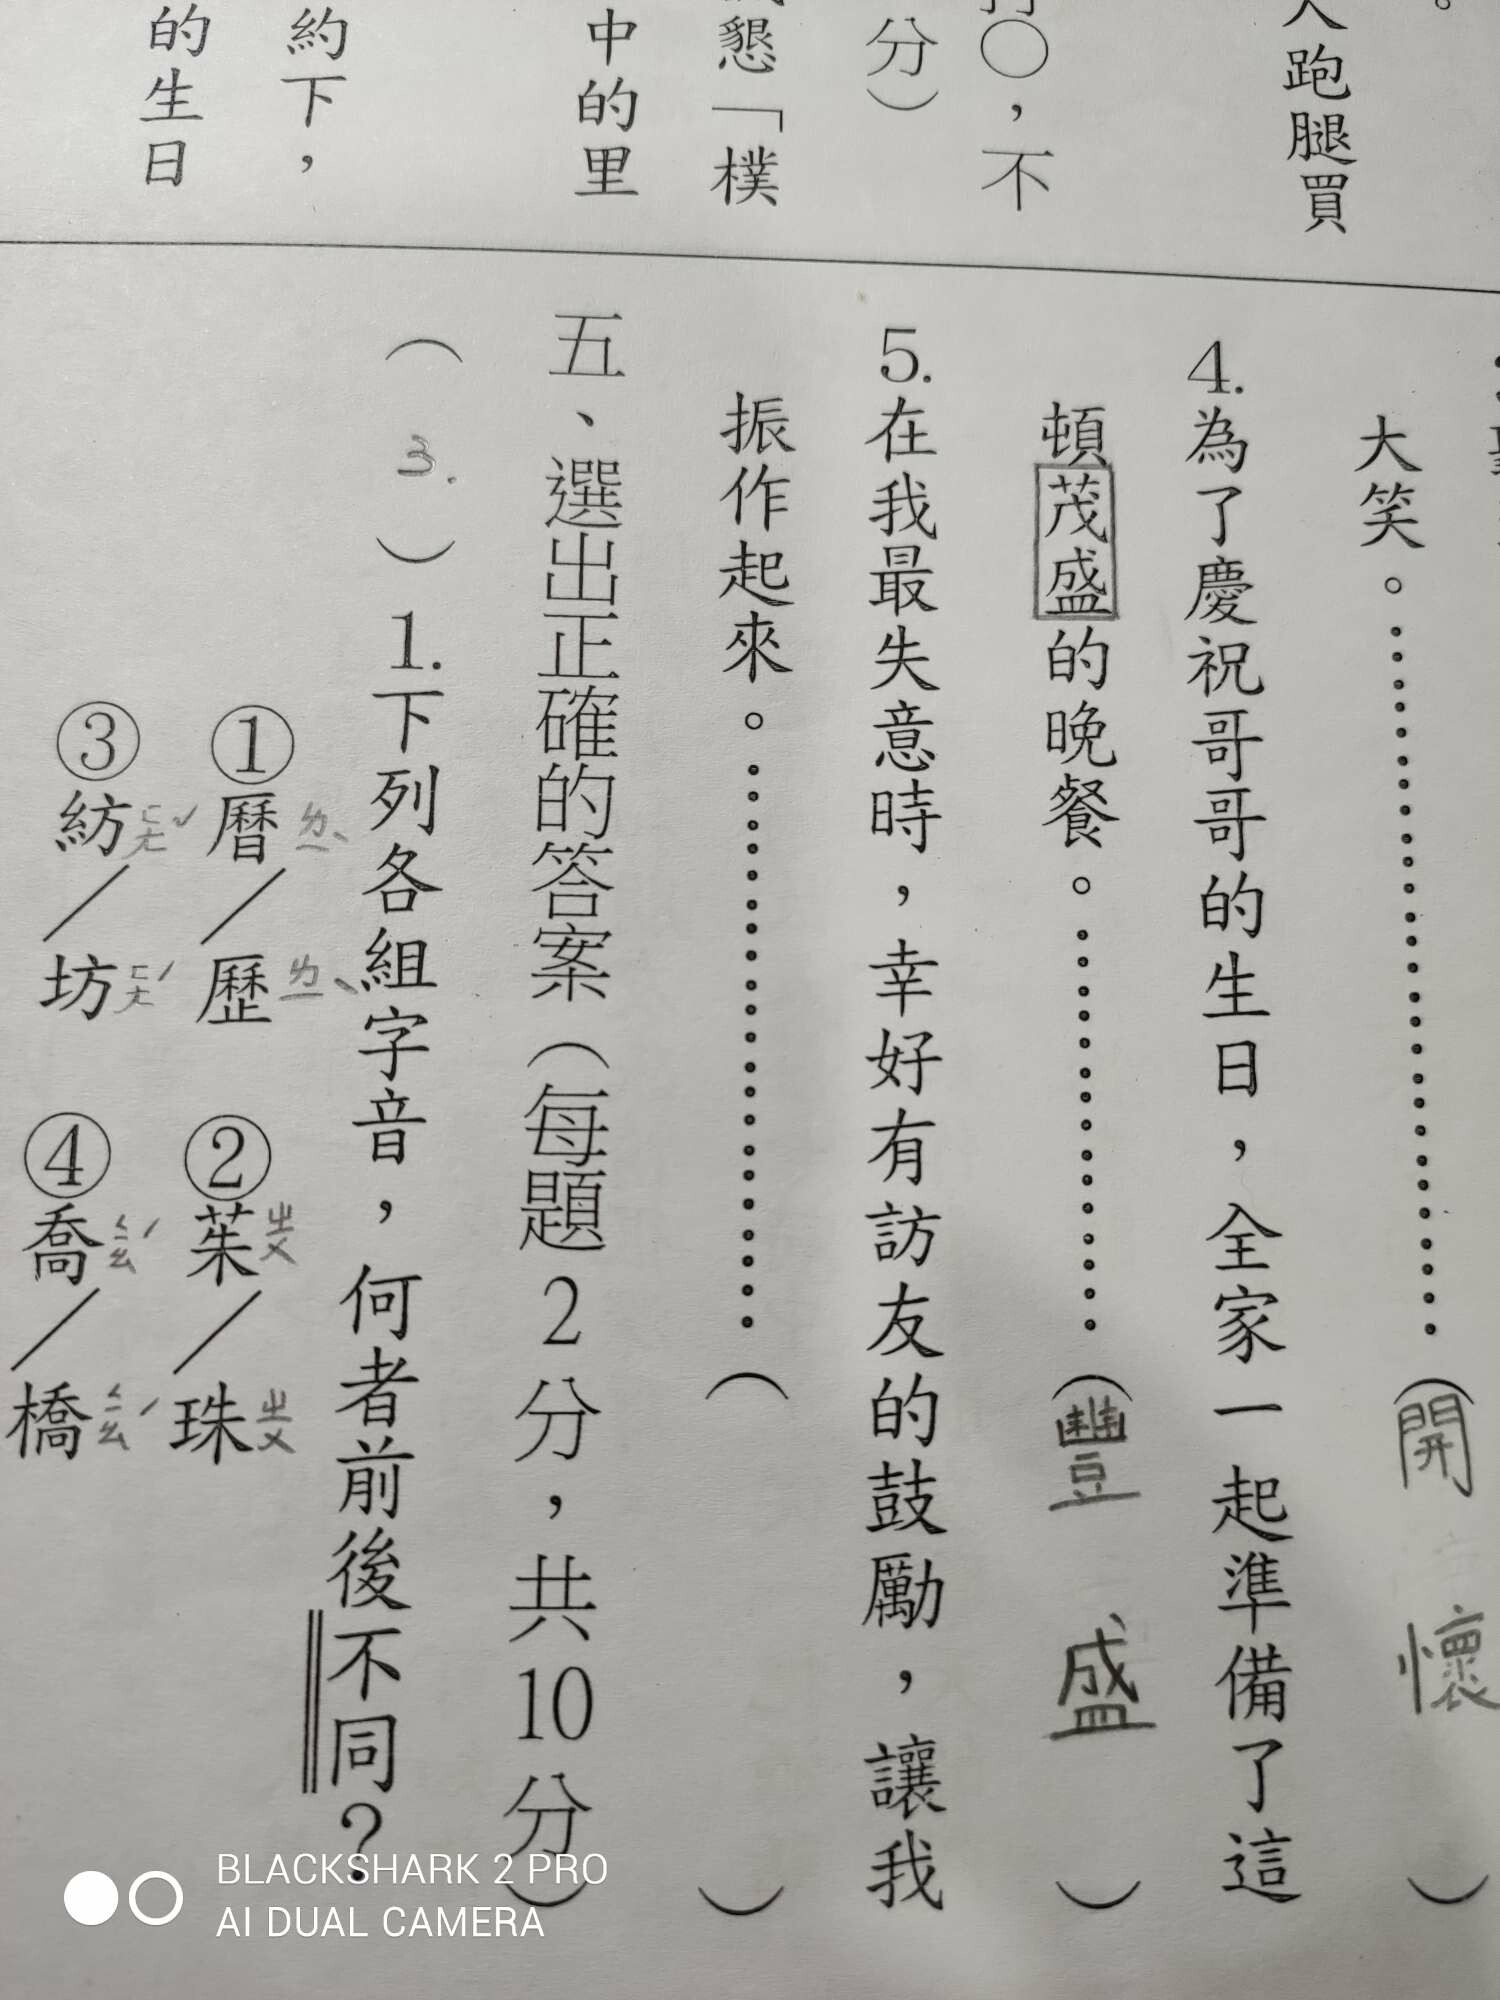 人跑腿買
○，不
分）
懇「樸
中的里
約下，
的生日
大笑。⋯⋯⋯⋯⋯⋯⋯⋯（開懷）
4.為了慶祝哥哥的生日，全家一起準備了這
頓茂盛的晚餐。⋯⋯⋯⋯⋯⋯（豐盛）
5.在我最失意時，幸好有訪友的鼓勵，讓我
振作起來。⋯⋯⋯⋯⋯⋯⋯⋯（ ）
五、選出正確的答案（每題2分，共10分）
（3.）1.下列各組字音，何者前後不同？
①曆ㄌㄧˋ／歷ㄌㄧˋ ②茱ㄓㄨ／珠ㄓㄨ
③紡ㄈㄤˇ／坊ㄈㄤˊ ④喬ㄑㄧㄠˊ／橋ㄑㄧㄠˊ
BLACKSHARK 2 PRO
AI DUAL CAMERA